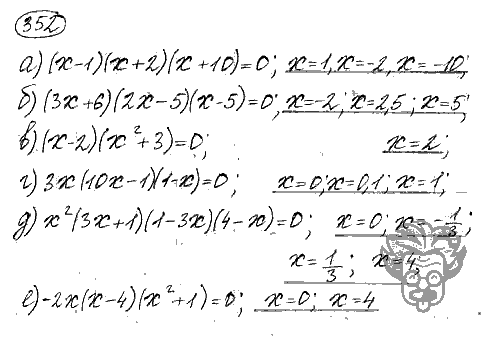 352
а) (x-1)(x+2)(x+10)=0; x=1, x=-2, x=-10;
б) (3x+6)(2x-5)(x-5)=0; x=-2; x=2,5; x=5;
в) (x-2)(x²+3)=0; x=2;
г) 3x(10x-1)(1-x)=0; x=0; x=0,1; x=1;
д) x²(3x+1)(1-3x)(4-x)=0; x=0; x=-1/3;
x=1/3; x=4;
е) -2x(x-4)(x²+1)=0; x=0; x=4